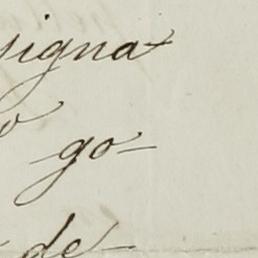 signa
go-
de-